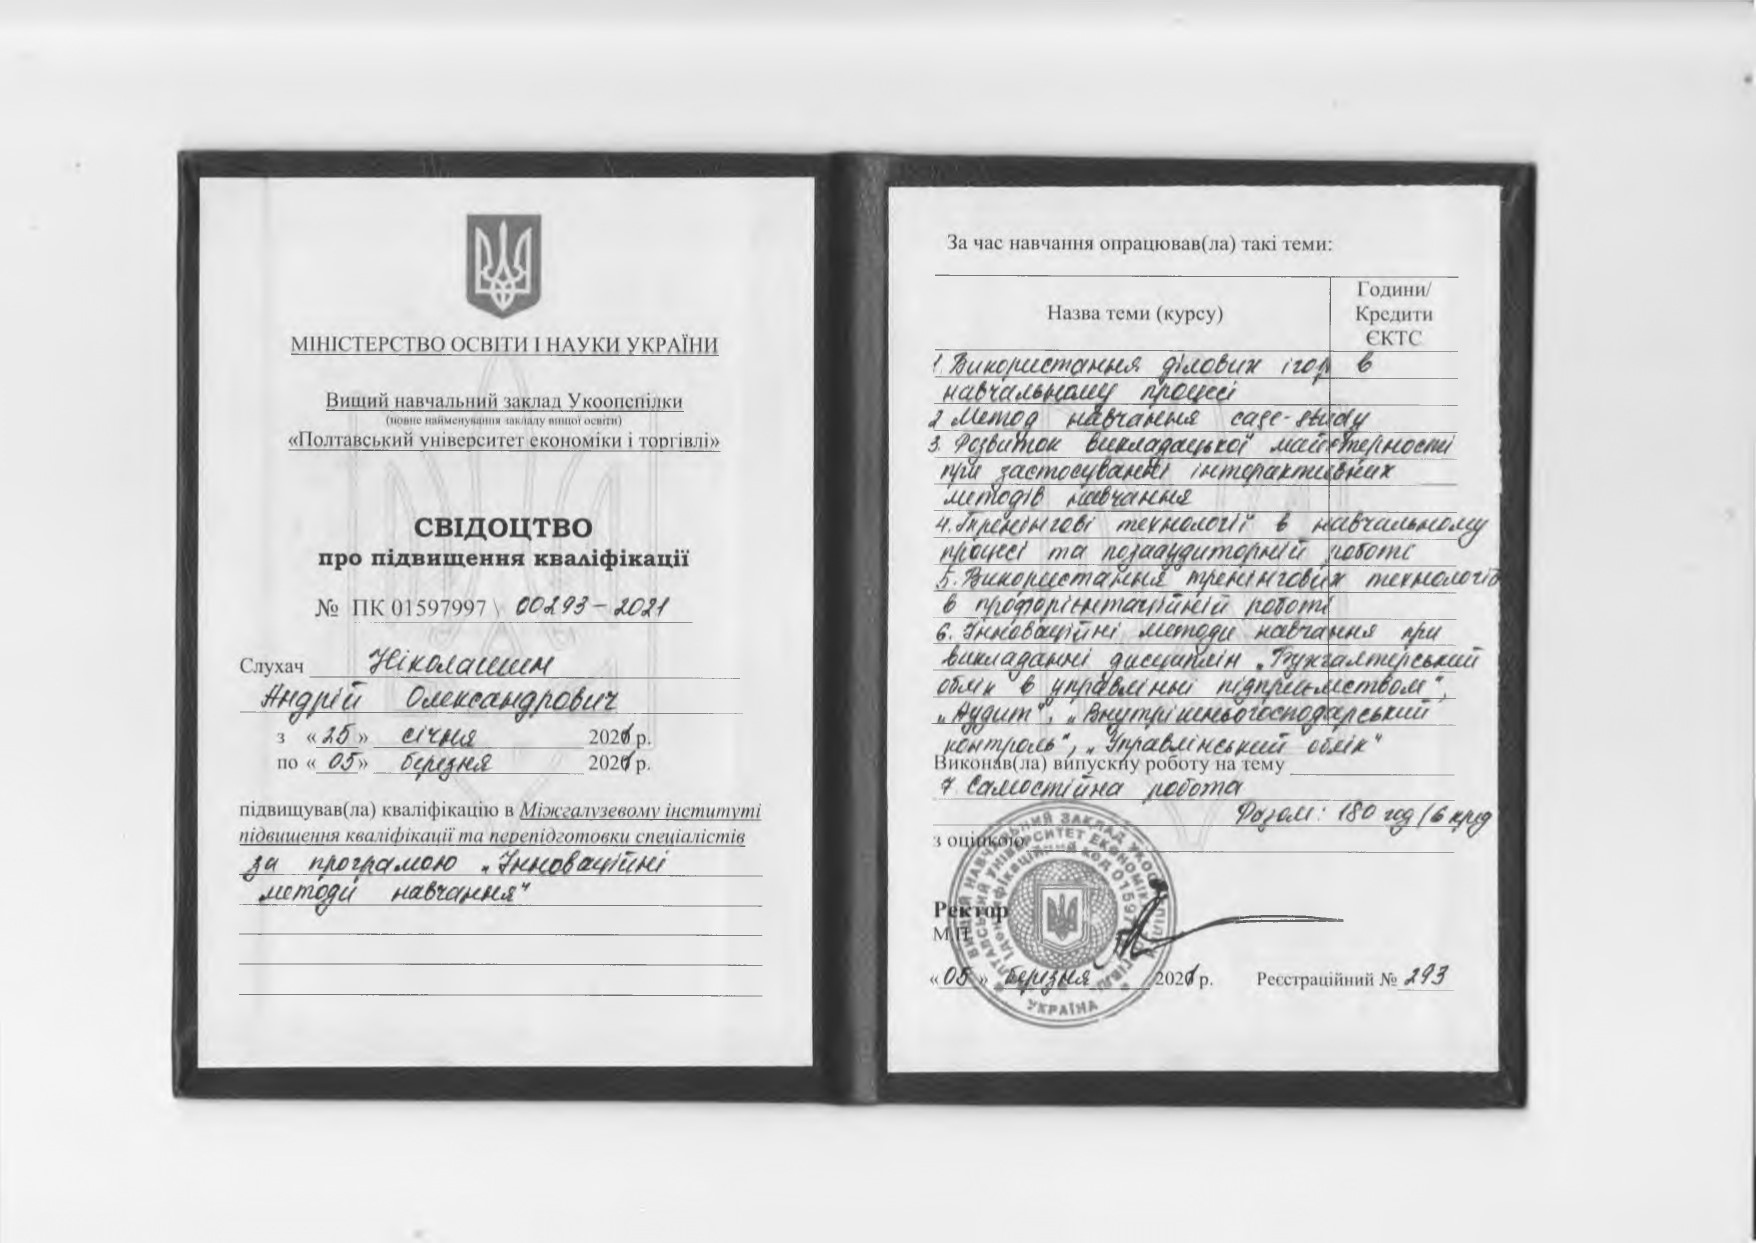 МІНІСТЕРСТВО ОСВІТИ І НАУКИ УКРАЇНИ
Вищий навчальний заклад Укоопспілки
(повне найменування закладу вищої освіти)
«Полтавський університет економіки і торгівлі»
СВІДОЦТВО
про підвищення кваліфікації
№ ПК 01597997 \ 00293-2021
Слухач Ніколашин
Андрій Олександрович
з «25» січня 2021 р.
по «05» березня 2021 р.
підвищував(ла) кваліфікацію в Міжгалузевому інституті
підвищення кваліфікації та перепідготовки спеціалістів
за програмою „Інноваційні
методи навчання"
За час навчання опрацював(ла) такі теми:
Назва теми (курсу)
Години/
Кредити
ЄКТС
1. Використання ділових ігор в
навчальному процесі
2. Метод навчання case-study
3. Розвиток викладацької майстерності
при застосуванні інтерактивних
методів навчання
4. Тренінгові технології в навчальному
процесі та позааудиторній роботі
5. Використання тренінгових технологій
в профорієнтаційній роботі
6. Інноваційні методи навчання при
викладанні дисциплін „Бухгалтерський
облік в управлінні підприємством",
„Аудит", „Внутрішньогосподарський
контроль", „Управлінський облік"
Виконав(ла) випускну роботу на тему
7. Самостійна робота
Разом: 180 год / 6 кред
з оцінкою
Ректор
М.П.
«05» березня 2021 р. Реєстраційний № 293
УКРАЇНА